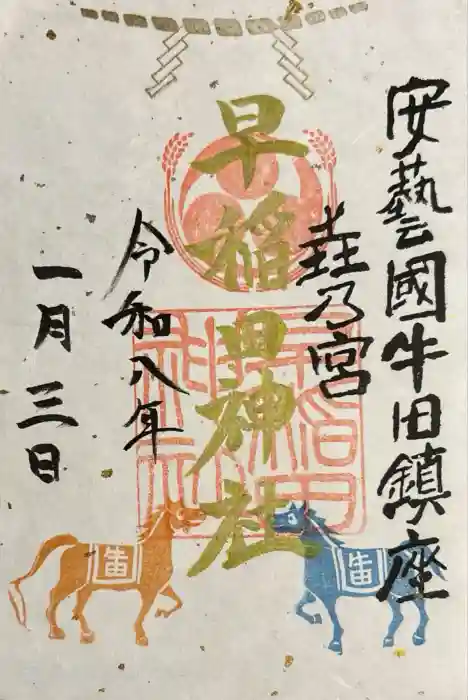 安藝國牛田鎮座
垚乃宮
早稲田神社
令和八年
一月三日
早稲田神社
牛田
牛田